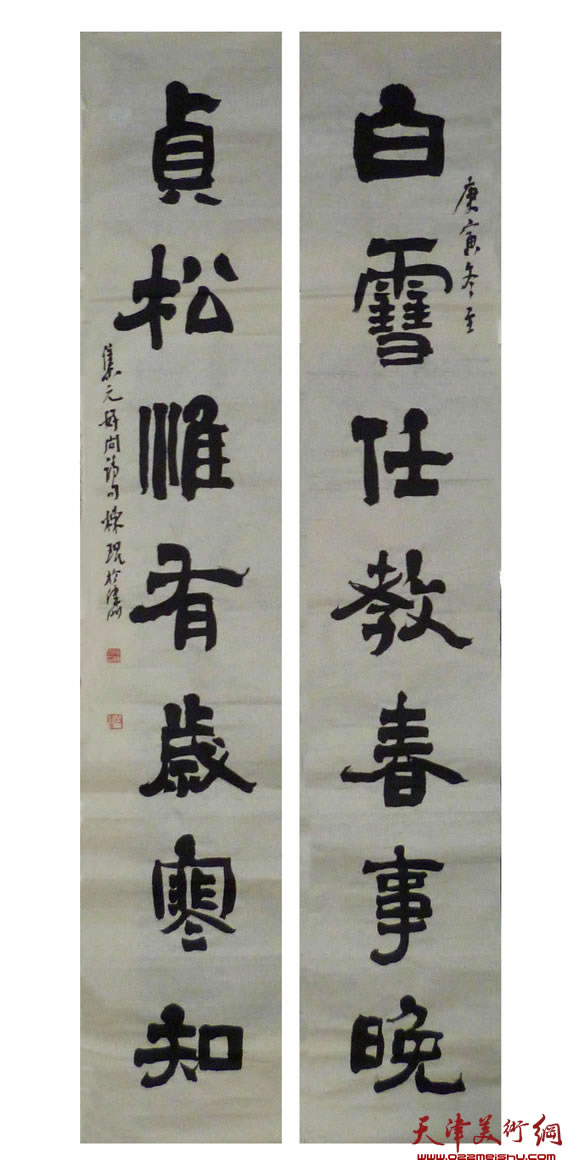 白雪任教春事晚
庚寅冬至
貞松惟有歲寒知
集元好問詩句
天津美術網
www.022meishu.com